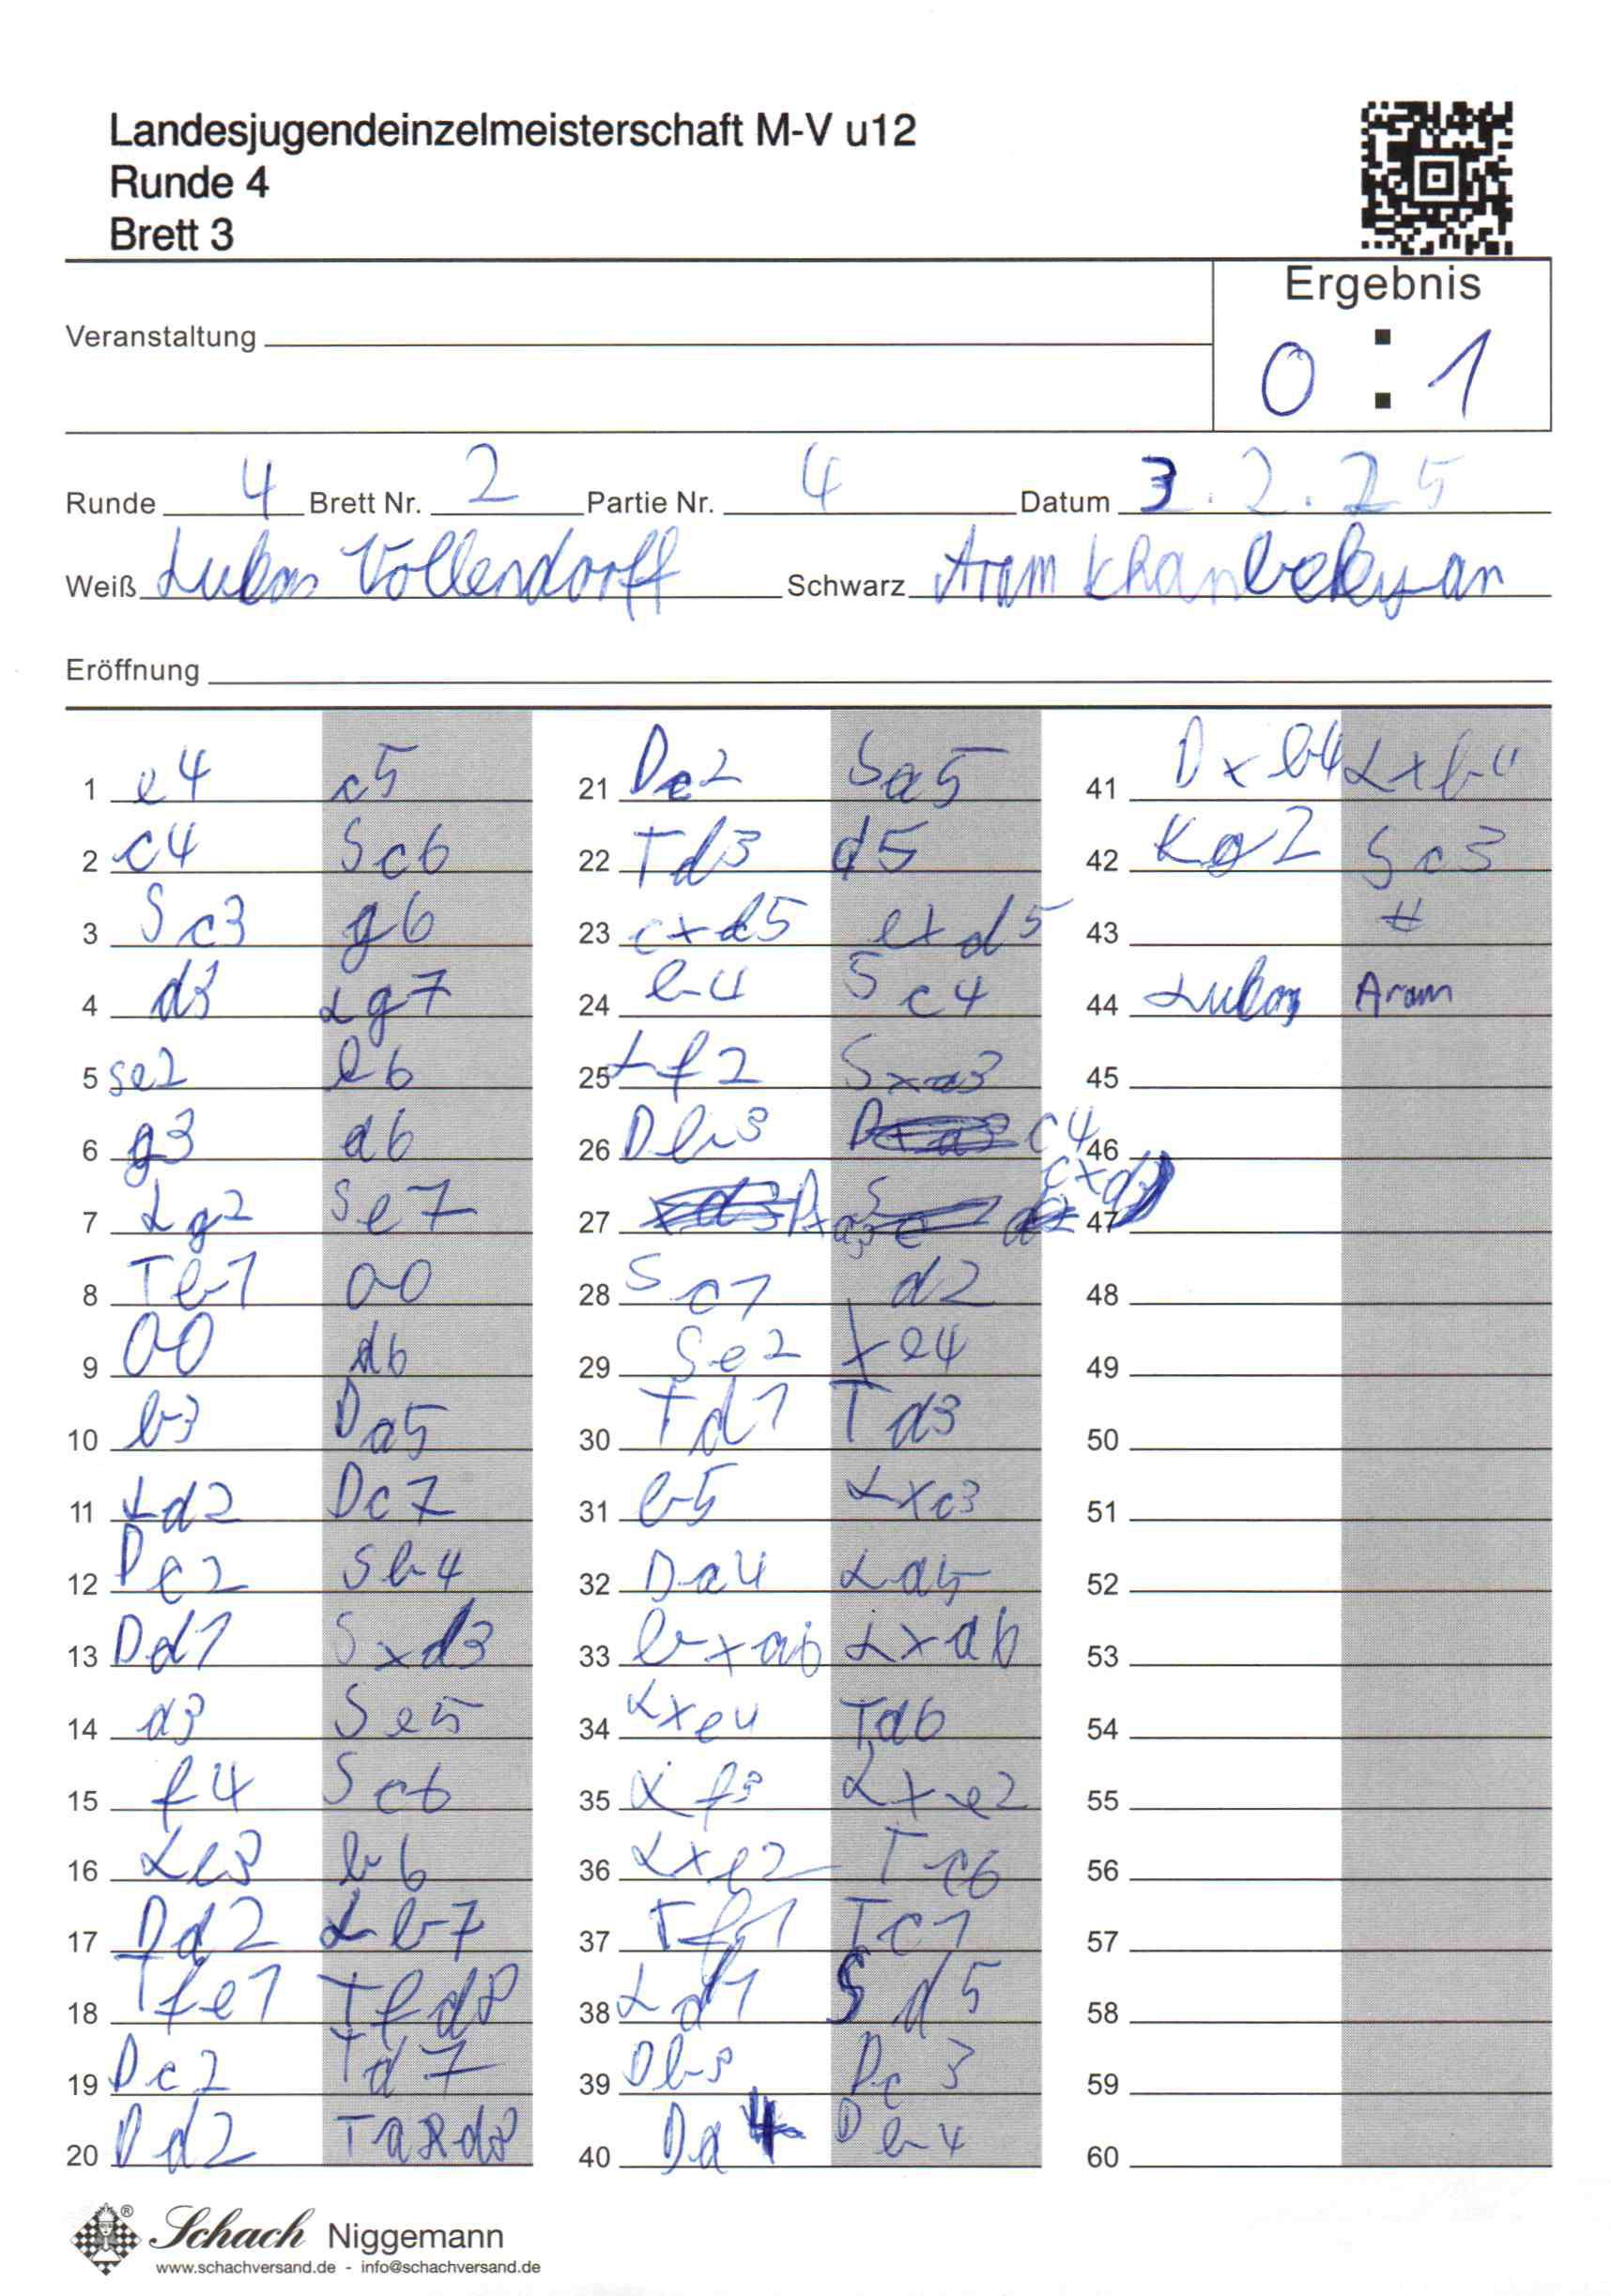 Landesjugendeinzelmeisterschaft M-V u12
Runde 4
Brett 3
Ergebnis
Veranstaltung
0 : 1
Runde 4 Brett Nr. 2 Partie Nr. 4 Datum 3.2.25
Weiß Lukas Vollendorff Schwarz Aram Khanbekyan
Eröffnung
1 e4 c5
2 c4 Sc6
3 Sc3 g6
4 d3 Lg7
5 Se2 e6
6 g3 a6
7 Lg2 Se7
8 Tb1 00
9 00 d6
10 b3 Da5
11 Ld2 Dc7
12 Dc2 Sb4
13 Dd1 Sxd3
14 d3 Se5
15 f4 Sc6
16 Le3 b6
17 Dd2 Lb7
18 Tfe1 Tfd8
19 Dc2 Td7
20 Dd2 Ta8d8
21 Dc2 Sa5
22 Td3 d5
23 cxd5 exd5
24 b4 Sc4
25 Lf2 Sxa3
26 Db3 c4
27 Dxa3 cxd3
28 Sc1 d2
29 Se2 xe4
30 Td1 Td3
31 b5 Lxc3
32 Da4 La5
33 bxa6 Lxa6
34 Lxe4 Td6
35 Lf3 Lxe2
36 Lxe2 Tc6
37 Tf1 Tc1
38 Ld1 Sd5
39 Db3 Dc3
40 Da4 Db4
41 Dxb4 Lxb4
42 Kg2 Sc3
43 #
44 Lukas Aram
45
46
47
48
49
50
51
52
53
54
55
56
57
58
59
60
Schach Niggemann
www.schachversand.de - info@schachversand.de